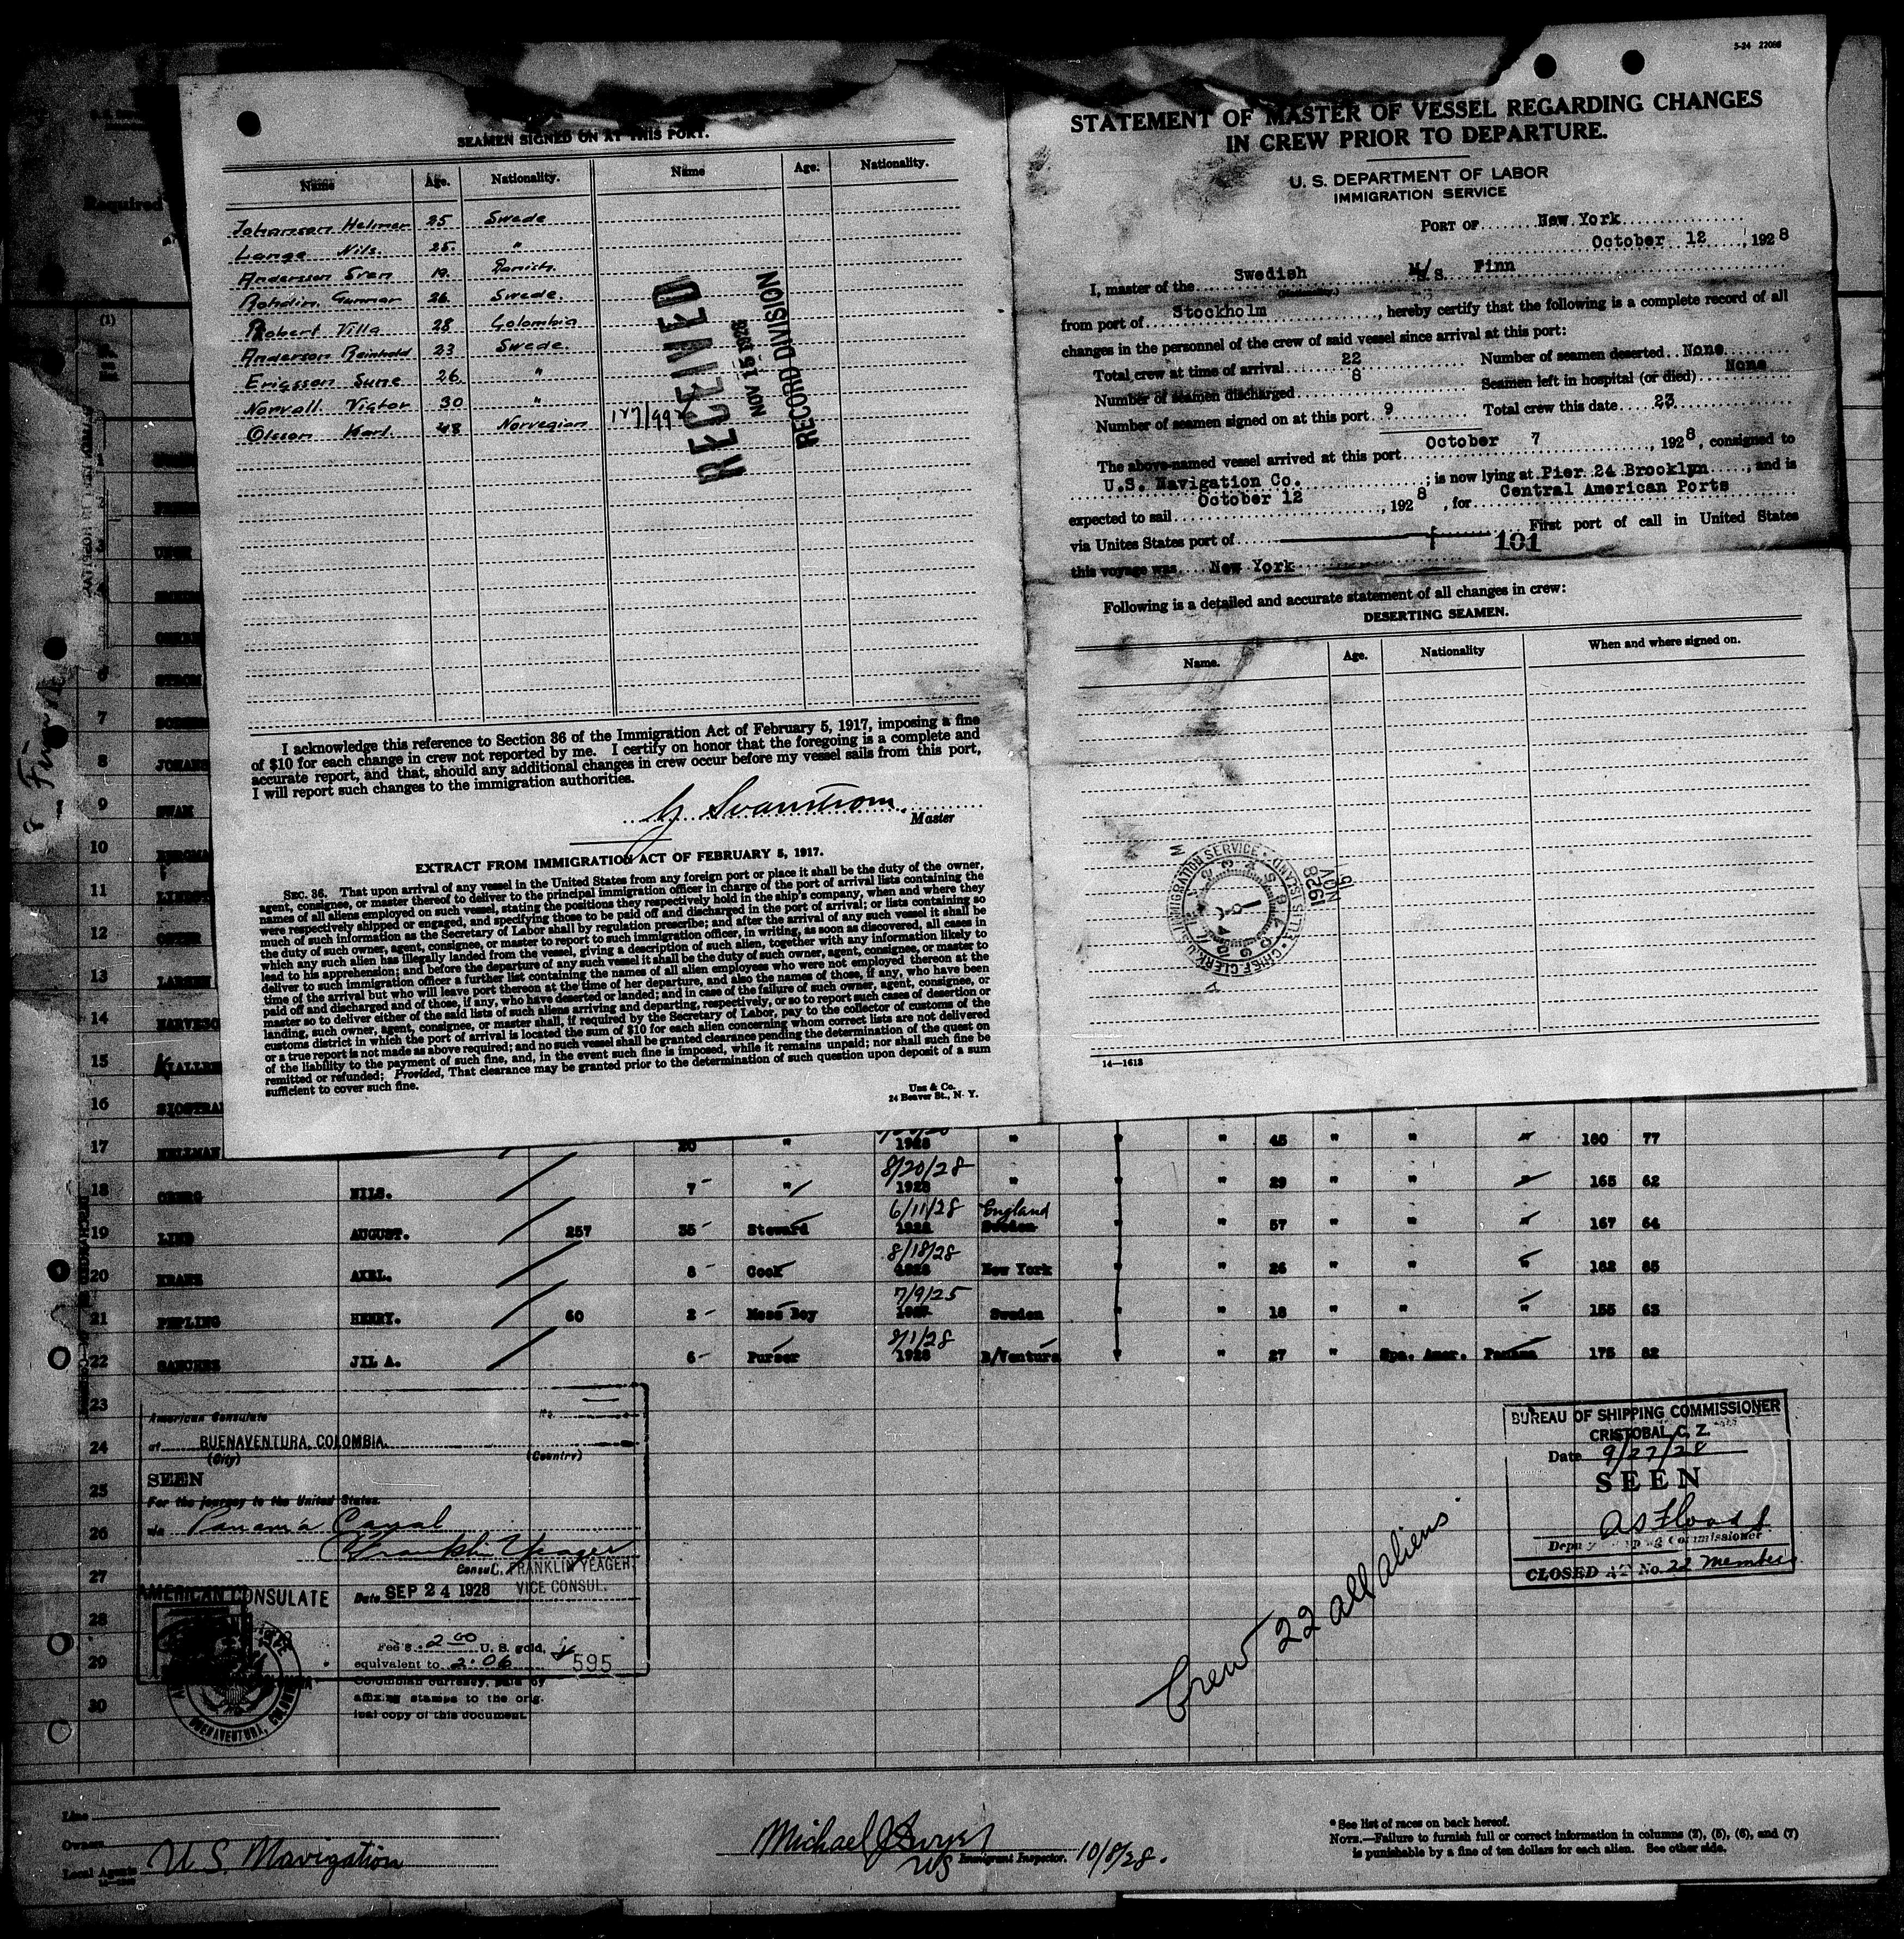 5-24 22086
SEAMEN SIGNED ON AT THIS PORT.
Name Age. Nationality. Name Age. Nationality.
Johanson Helmer 25 Swede
Lange Nils. 25. "
Andersson Sven 19. Danish.
Rohdin. Gunnar 26. Swede.
Robert Villa 28 Colombia
Anderson Reinhold 23 Swede.
Ericsson Sune 26 "
Norvall Victor 30 "
Olsson Karl. 48 Norvegian
RECEIVED
NOV 15 1928
RECORD DIVISION
I acknowledge this reference to Section 36 of the Immigration Act of February 5, 1917, imposing a fine
of $10 for each change in crew not reported by me. I certify on honor that the foregoing is a complete and
accurate report, and that, should any additional changes in crew occur before my vessel sails from this port,
I will report such changes to the immigration authorities.
Svanstrom
Master
EXTRACT FROM IMMIGRATION ACT OF FEBRUARY 5, 1917.
SEC. 36. That upon arrival of any vessel in the United States from any foreign port or place it shall be the duty of the owner,
agent, consignee, or master thereof to deliver to the principal immigration officer in charge of the port of arrival lists containing the
names of all aliens employed on such vessel, stating the positions they respectively hold in the ship's company, when and where they
were respectively shipped or engaged, and specifying those to be paid off and discharged in the port of arrival; or lists containing so
much of such information as the Secretary of Labor shall by regulation prescribe; and after the arrival of any such vessel it shall be
the duty of such owner, agent, consignee, or master to report to such immigration officer, in writing, as soon as discovered, all cases in
which any such alien has illegally landed from the vessel, giving a description of such alien, together with any information likely to
lead to his apprehension; and before the departure of any such vessel it shall be the duty of such owner, agent, consignee, or master to
deliver to such immigration officer a further list containing the names of all alien employees who were not employed thereon at the
time of the arrival but who will leave port thereon at the time of her departure, and also the names of those, if any, who have been
paid off and discharged and of those, if any, who have deserted or landed; and in case of the failure of such owner, agent, consignee, or
master so to deliver either of the said lists of such aliens arriving and departing, respectively, or so to report such cases of desertion or
landing, such owner, agent, consignee, or master shall, if required by the Secretary of Labor, pay to the collector of customs of the
customs district in which the port of arrival is located the sum of $10 for each alien concerning whom correct lists are not delivered
or a true report is not made as above required; and no such vessel shall be granted clearance pending the determination of the quest on
of the liability to the payment of such fine, and, in the event such fine is imposed, while it remains unpaid; nor shall such fine be
remitted or refunded; Provided, That clearance may be granted prior to the determination of such question upon deposit of a sum
sufficient to cover such fine.
24 Beaver St., N. Y.
STATEMENT OF MASTER OF VESSEL REGARDING CHANGES
IN CREW PRIOR TO DEPARTURE.
U. S. DEPARTMENT OF LABOR
IMMIGRATION SERVICE
PORT OF New York
October 12, 1928
I, master of the Swedish M/S. Finn
from port of Stockholm, hereby certify that the following is a complete record of all
changes in the personnel of the crew of said vessel since arrival at this port:
Total crew at time of arrival 22 Number of seamen deserted None
Number of seamen discharged 8 Seamen left in hospital (or died) None
Number of seamen signed on at this port 9 Total crew this date 23
The above-named vessel arrived at this port October 7, 1928, consigned to
U.S. Navigation Co.; is now lying at Pier 24 Brooklyn, and is
expected to sail October 12, 1928, for Central American Ports
via Unites States port of First port of call in United States
101
this voyage was New York
Following is a detailed and accurate statement of all changes in crew:
DESERTING SEAMEN.
Name. Age. Nationality When and where signed on.
NOV 15 1928
14—1613
Required
(1)
7
8
9 SWAN
10
11
12
13 LARSEN
14
15
16
17 HELLMAN 20 " 1928 " " 45 " " " 160 77
18 OBERG NILS. 7 " 8/20/28 1928 " " 29 " " " 165 62
19 LIND AUGUST. 257 35 Steward 6/11/28 England Sweden " 57 " " " 167 64
20 AXEL. 8 Cook 8/18/28 New York " 26 " " " 182 85
21 HENRY. 60 2 Mess Boy 7/9/25 Sweden " " 18 " " " 155 63
22 SANCHES JIL A. 6 Purser 8/1/28 1928 B/Ventura " " 27 " Spa. Amer. Panama 175 82
23
24
25
26
27
28
29
30
American Consulate No.
at BUENAVENTURA, COLOMBIA.
(City) (Country)
SEEN
For the journey to the United States.
via Panama Canal
Franklin Yeager
Consul. FRANKLIN YEAGER
VICE CONSUL.
AMERICAN CONSULATE Date SEP 24 1928
Fee $ 2.00 U. S. gold,
equivalent to 2.06 595
Colombian currency, paid by
affixing stamps to the orig-
inal copy of this document.
BUENAVENTURA, COLOMBIA
BUREAU OF SHIPPING COMMISSIONER
CRISTOBAL, C. Z.
Date 9/27/28
SEEN
Deputy Shipping Commissioner
CLOSED AT No. 22 Members
Crew 22 all aliens
Line
Owners
Local Agents U.S. Navigation
Michael J.
Immigrant Inspector. 10/8/28.
* See list of races on back hereof.
NOTE.—Failure to furnish full or correct information in columns (2), (5), (6), and (7)
is punishable by a fine of ten dollars for each alien. See other side.